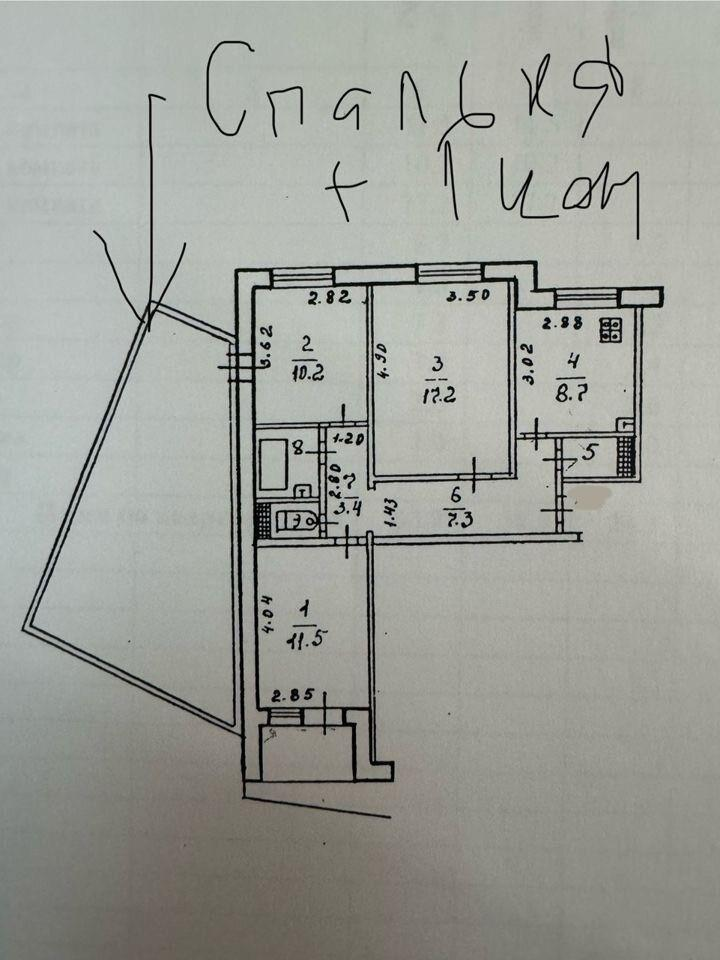 Спальня
+ 1 ком
2.82
3.50
2.88
3.62
2
10.2
4.90
3
17.2
3.02
4
8.7
1.20
8
5
2.80
7
3.4
1.43
6
7.3
4.04
1
11.5
2.85